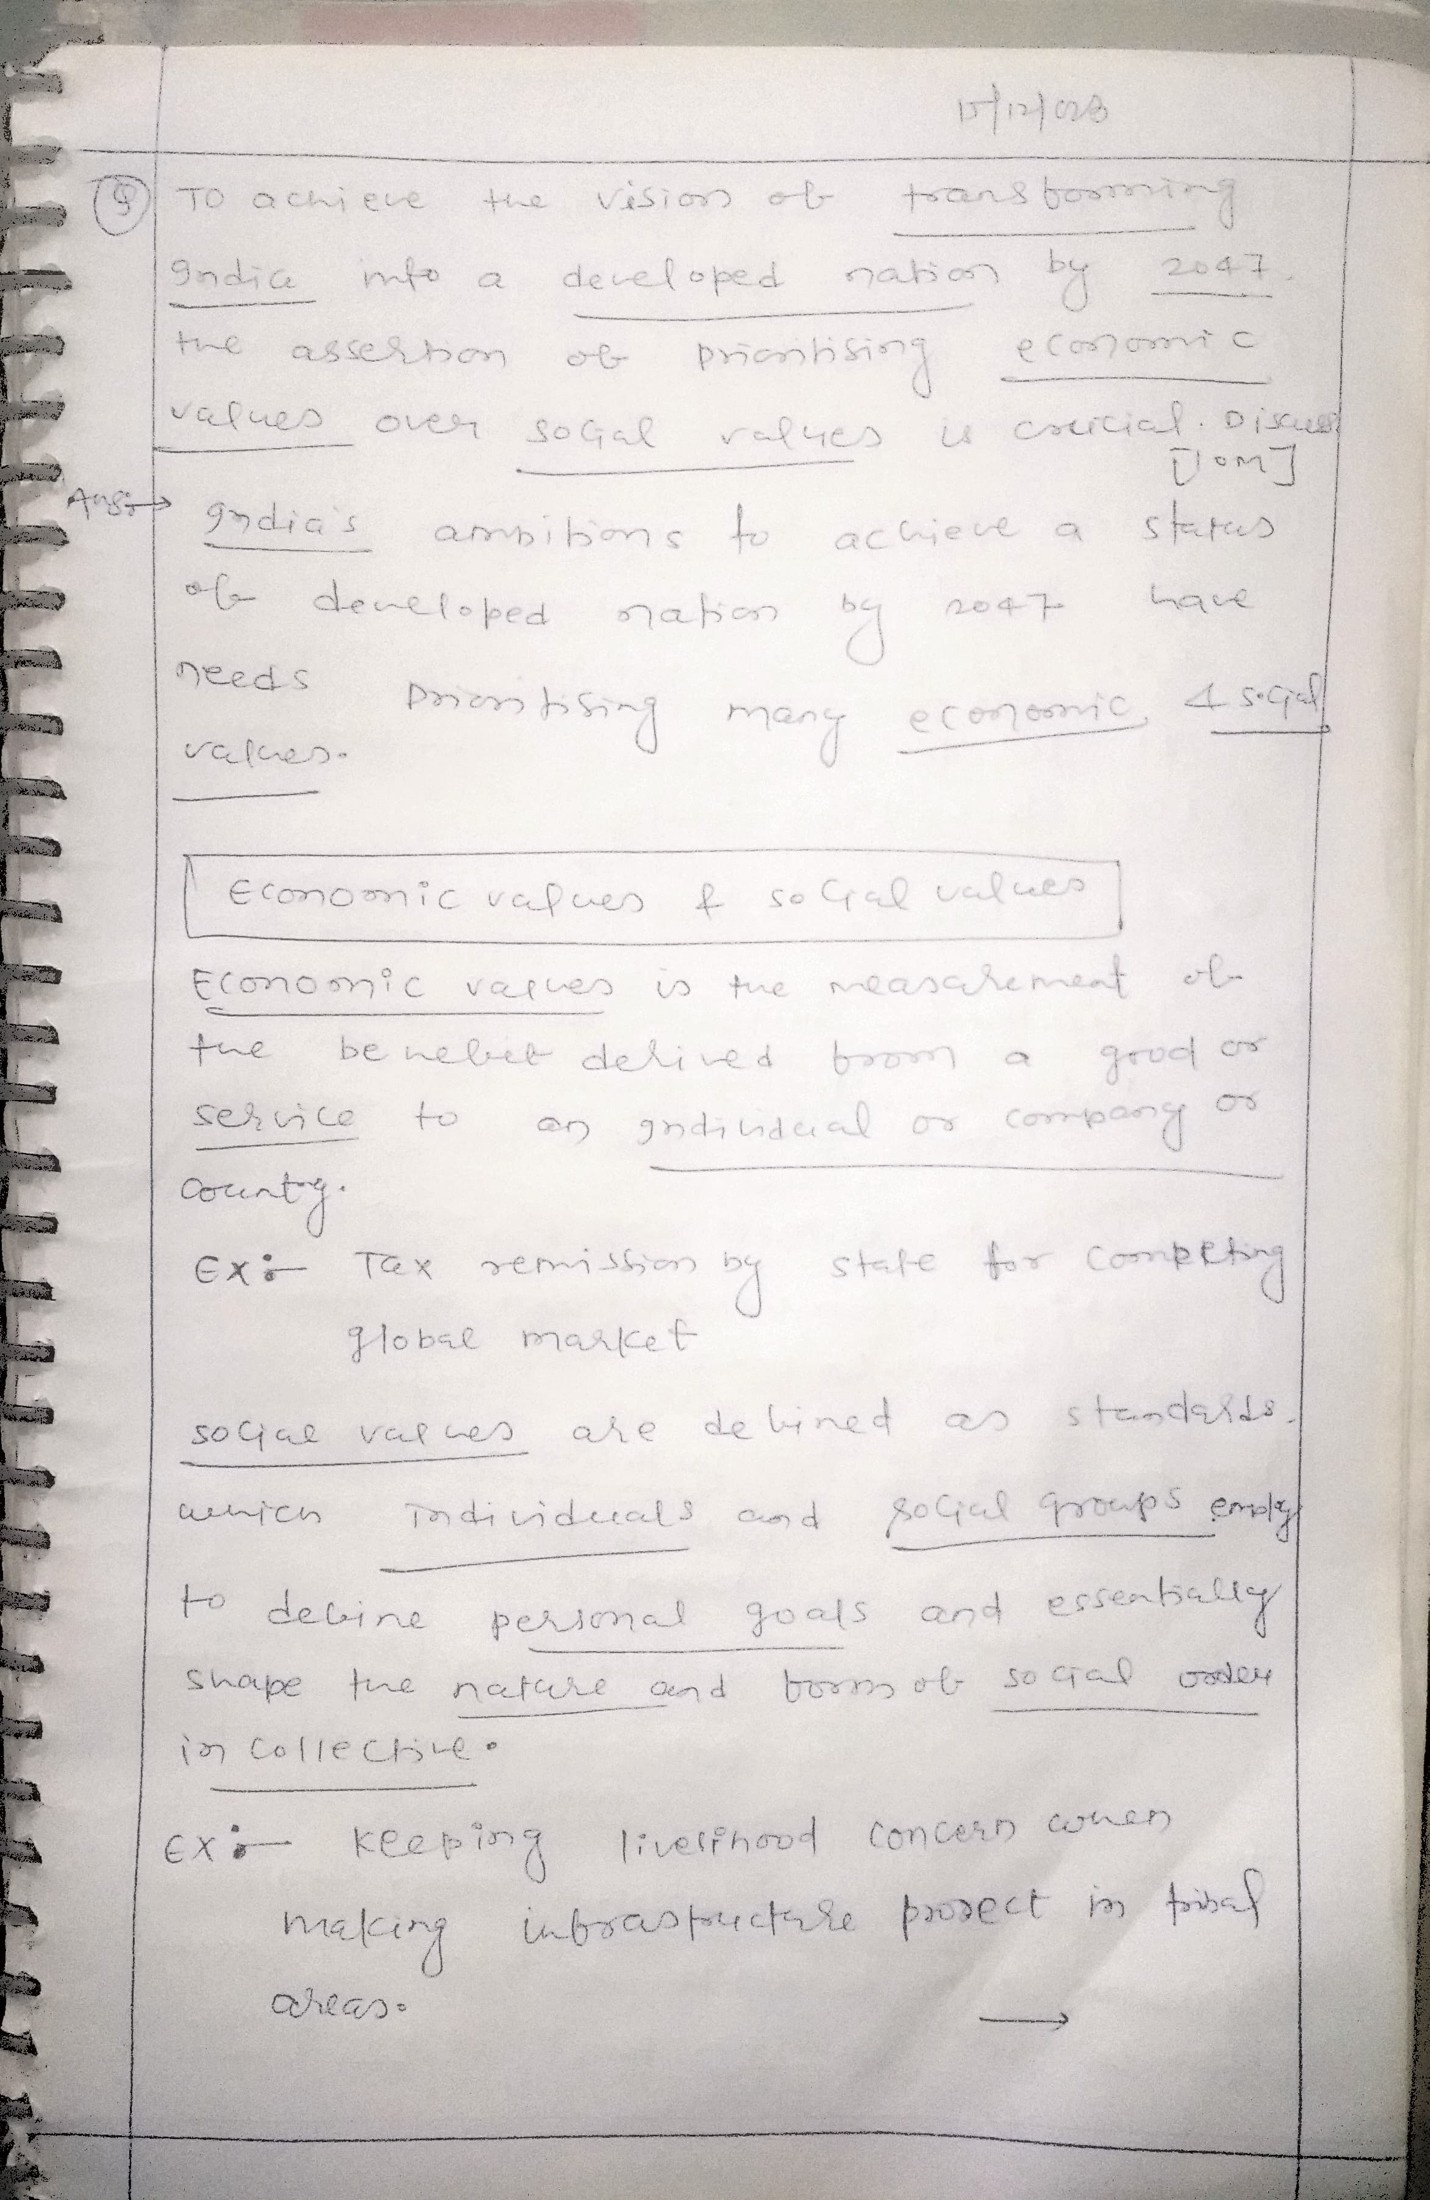 15/12/023
Q TO achieve the vision of transforming
India into a developed nation by 2047.
the assertion of prioritising economic
values over social values is crucial. Discuss
[10M]
Ans:→ India's ambitions to achieve a status
of developed nation by 2047 have
needs prioritising many economic & social
values.
Economic values & social values
Economic values is the measurement of
the benefit derived from a good or
service to an individual or company or
country.
Ex:- Tax remission by state for competing
global market
social values are defined as standards.
which individuals and social groups employ
to define personal goals and essentially
shape the nature and form of social order
in collective.
Ex:- Keeping livelihood concern when
making infrastructure project in tribal
areas.
→